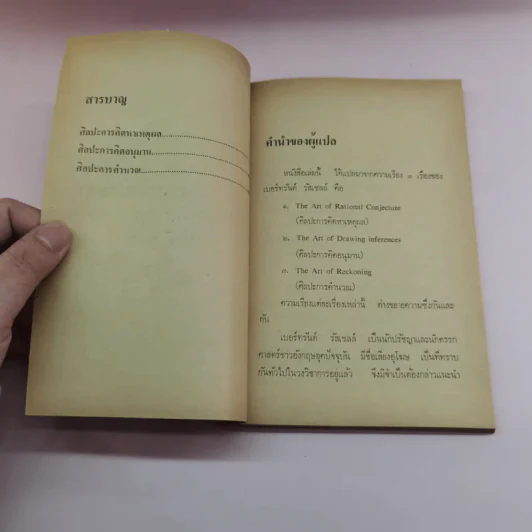 สารบาญ
ศิลปะการคิดหาเหตุผล
ศิลปะการคิดอนุมาน
ศิลปะการคำนวณ
คำนำของผู้แปล
หนังสือเล่มนี้ ได้แปลมาจากความเรียง ๓ เรื่องของ
เบอร์ทรันด์ รัสเซลล์ คือ
๑. The Art of Rational Conjecture
(ศิลปะการคิดหาเหตุผล)
๒. The Art of Drawing inferences
(ศิลปะการคิดอนุมาน)
๓. The Art of Reckoning
(ศิลปะการคำนวณ)
ความเรียงแต่ละเรื่องเหล่านี้ ต่างขยายความซึ่งกันและ
กัน
เบอร์ทรันด์ รัสเซลล์ เป็นนักปรัชญาและนักตรรก
ศาสตร์ชาวอังกฤษยุคปัจจุบัน มีชื่อเสียงอุโฆษ เป็นที่ทราบ
กันทั่วไปในวงวิชาการอยู่แล้ว จึงมิจำเป็นต้องกล่าวแนะนำ